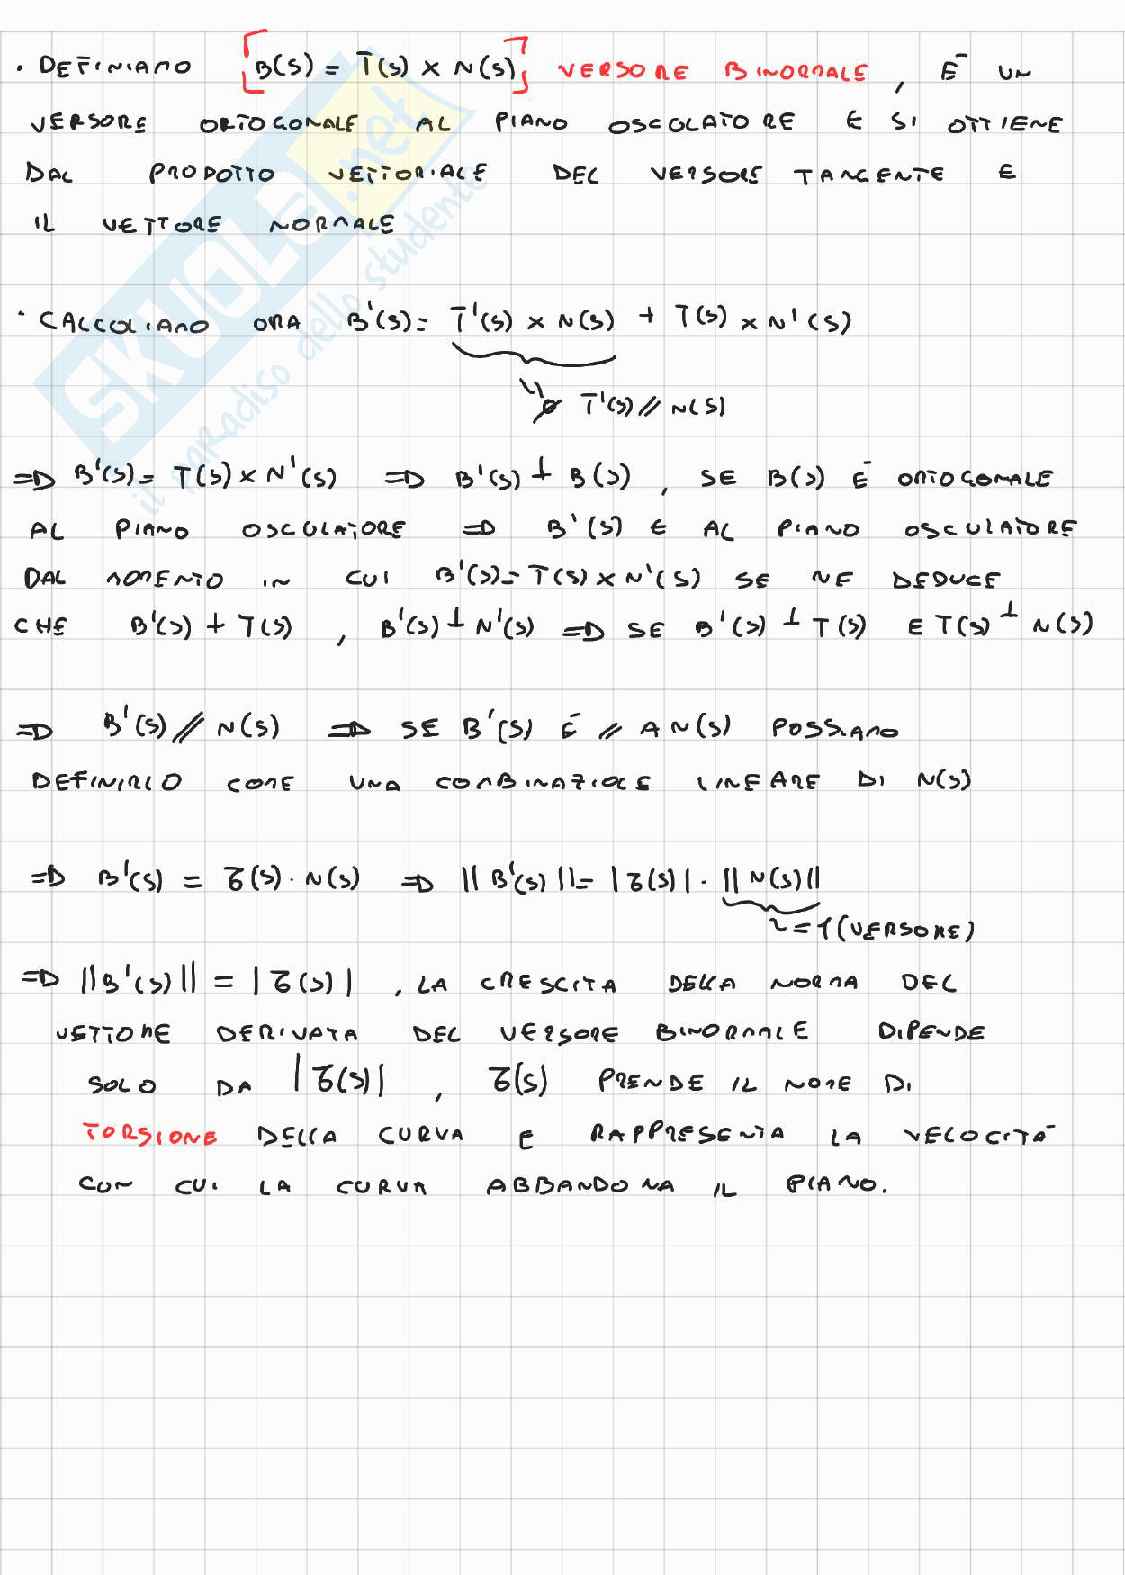 . DEFINIAMO [B(S) = T(S) × N(S)] VERSORE BINORMALE, È UN
VERSORE ORTOGONALE AL PIANO OSCOLATORE E SI OTTIENE
DAL PRODOTTO VETTORIALE DEL VERSORE TANGENTE E
IL VETTORE NORMALE
· CALCOLIAMO ORA B'(S) = T'(S) × N(S) + T(S) × N'(S)
T'(S) // N(S)
=> B'(S) = T(S) × N'(S) => B'(S) ⊥ B(S), SE B(S) È ORTOGONALE
AL PIANO OSCULATORE => B'(S) E AL PIANO OSCULATORE
DAL MOMENTO IN CUI B'(S) = T(S) × N'(S) SE NE DEDUCE
CHE B'(S) ⊥ T(S), B'(S) ⊥ N'(S) => SE B'(S) ⊥ T(S) E T(S) ⊥ N(S)
=> B'(S) // N(S) => SE B'(S) È // A N(S) POSSIAMO
DEFINIRLO COME UNA COMBINAZIONE LINEARE DI N(S)
=> B'(S) = τ(S) · N(S) => ||B'(S)|| = |τ(S)| · ||N(S)||
= 1 (VERSORE)
=> ||B'(S)|| = |τ(S)|, LA CRESCITA DELLA NORMA DEL
VETTORE DERIVATA DEL VERSORE BINORMALE DIPENDE
SOLO DA |τ(S)|, τ(S) PRENDE IL NOME DI
TORSIONE DELLA CURVA E RAPPRESENTA LA VELOCITÀ
CON CUI LA CURVA ABBANDONA IL PIANO.
SKUOLA.net
il paradiso dello studente